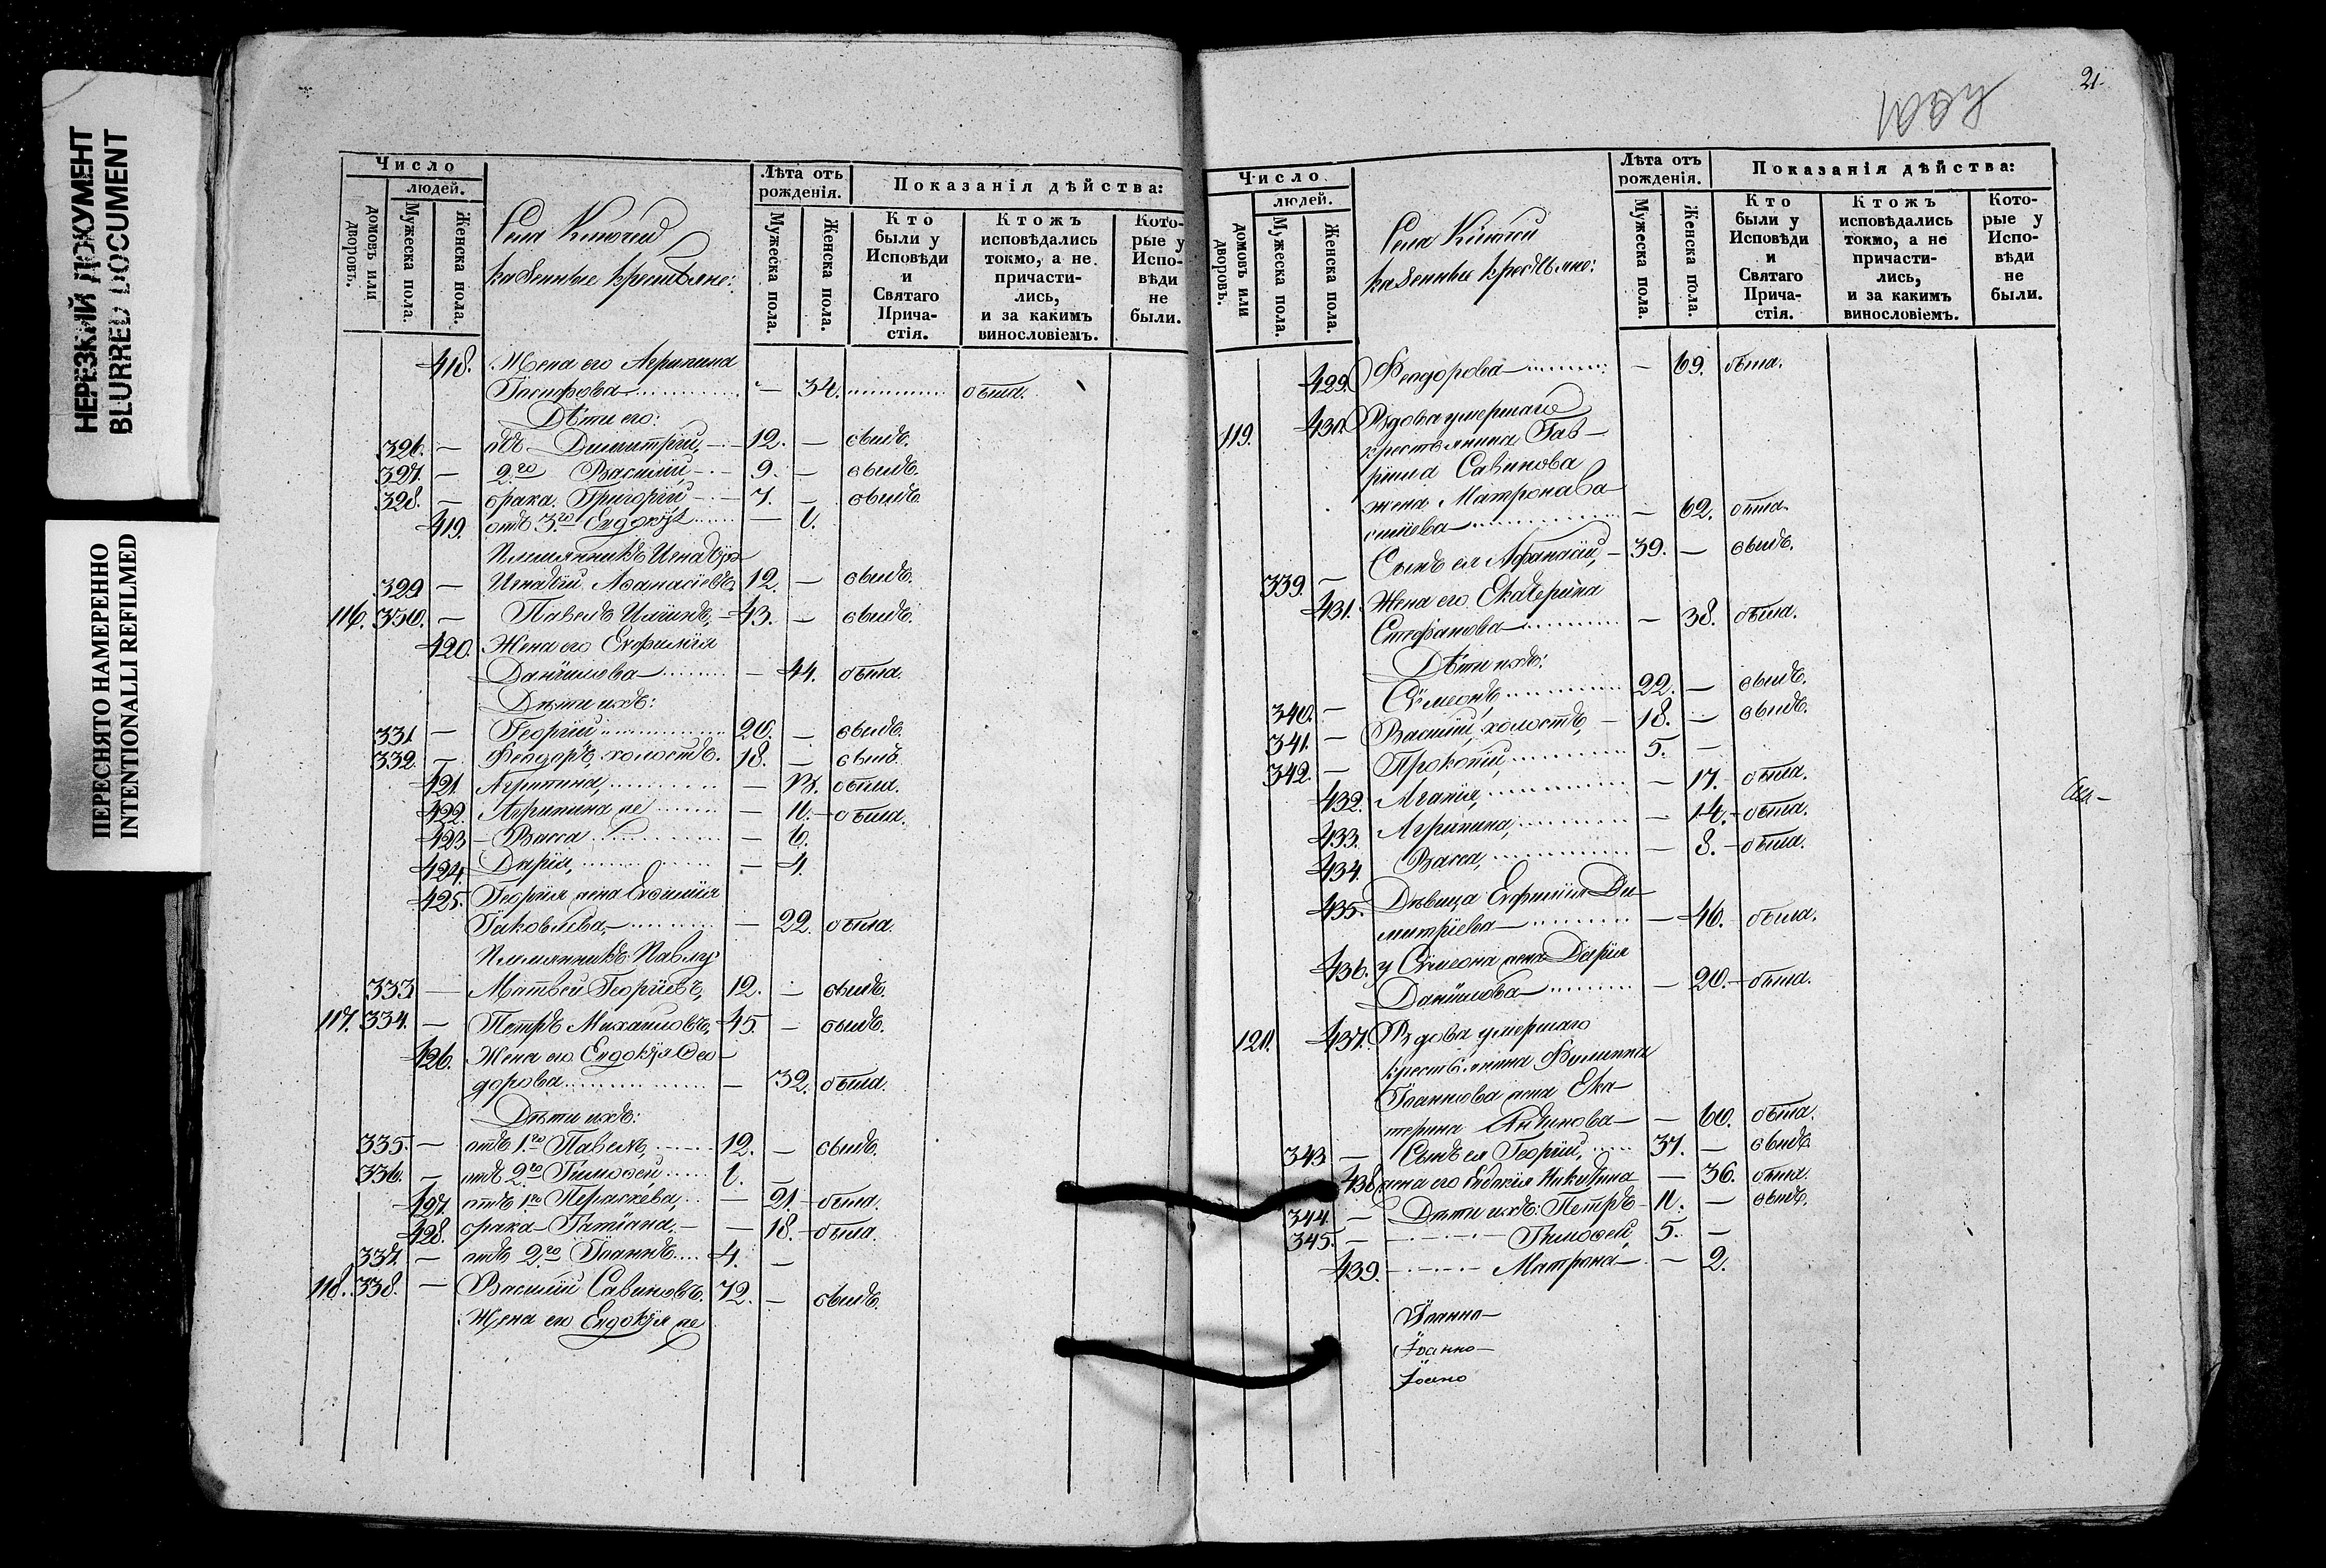 НЕРЕЗКИЙ ДОКУМЕНТ
BLURRED DOCUMENT
ПЕРЕСНЯТО НАМЕРЕННО
INTENTIONALLI REFILMED
Число
людей.
домовъ или дворовъ.
Мужеска пола.
Женска пола.
Села Ключей
казенные крестьяне:
Лѣта отъ рожденія.
Мужеска пола.
Женска пола.
Показанія дѣйства:
Кто были у Исповѣди и Святаго Прича-стія.
Ктожъ исповѣдались токмо, а не причасти-лись, и за какимъ винословіемъ.
Кото-рые у Испо-вѣди не были.
418. Жена его Агрипина
Іосифова — 34. была.
Дѣти его:
326. — Димитрій, 12. — былъ.
327. — 2го Василій, 9. — былъ.
328. — брака Григорій 7. — былъ
419. отъ 3го Евдокія — 1.
Племянникъ Игнатія
329 — Игнатій Аѳанасіевъ 12. — былъ.
116. 330. — Павелъ 43. — былъ.
420. Жена его Евфимія
Даніилова — 44. была.
Дѣти ихъ:
331 — Георгій 20. — былъ.
332. — Феодоръ, холостъ. 18. — былъ.
421. Агрипина, — 13. была.
422. Агрипина же — 11. была.
423 Васса — 6.
424. Дарія, — 4.
425. Георгія жена Евфимія
Іаковлева, — 22. была.
Племянникъ Павлу
333 — Матвей Георгіевъ, 12. — былъ.
117. 334. — Петръ Михайловъ, 45 — былъ.
426. Жена его Евдокія Ѳео-
дорова — 32. была.
Дѣти ихъ:
335. — отъ 1го Павелъ, 12. — былъ.
336. — отъ 2го Тимоѳей 1. —
427. отъ 1го Параскева, — 21. была.
428. брака Татіана — 18. была.
337. — отъ 2го Іоаннъ 4. —
118. 338. — Василій Савиновъ. 72. — былъ.
Жена его Евдокія же
21
Число
людей.
домовъ или дворовъ.
Мужеска пола.
Женска пола.
Села Ключей
казенные крестьяне:
Лѣта отъ рожденія.
Мужеска пола.
Женска пола.
Показанія дѣйства:
Кто были у Исповѣди и Святаго Прича-стія.
Ктожъ исповѣдались токмо, а не причасти-лись, и за какимъ винословіемъ.
Кото-рые у Испо-вѣди не были.
429. Феодорова — 69. была.
119. 430. Вдова умершаго
крестьянина Гав-
ріила Савинова
жена Матрона Ва-
силіева — 62. была.
339. — Сынъ ея Афанасій, 39. — былъ.
431. Жена его Екатерина
Стефанова — 38. была.
Дѣти ихъ:
340. — Сѵмеонъ, 22. — былъ.
341. — Василій, холостъ, 18. — былъ.
342. — Прокопій, 5. —
432. Агапія, — 17. была.
433. Агрипина, — 14. была.
434. Васса, — 8. была.
435. Дѣвица Евфимія Ди-
митріева — 46. была.
436. у Сѵмеона жена Дарія
Даніилова — 20. была.
120. 437. Вдова умершаго
крестьянина Филиппа
Іоаннова жена Ека-
терина — 60. была.
343. — Сынъ ея Георгій, 37. — былъ.
438 жена его Евдокія Никитина — 36. была.
344. — Дѣти ихъ: Петръ 11. — былъ.
345. — Тимоѳей, 5. —
439. Матрона — 2.
Іоанно—
Іоанно—
Іоано